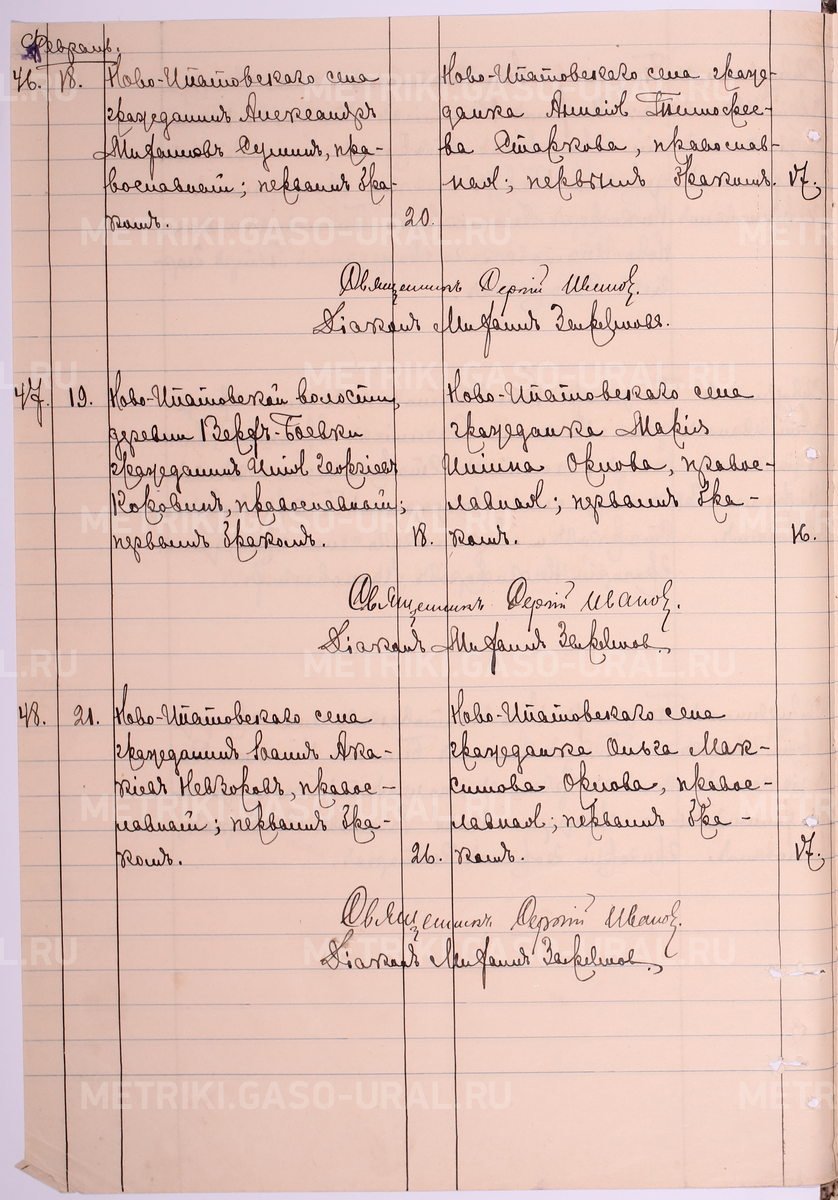 Февраль.
46. 18. Ново-Ипатовскаго села
гражданинъ Александръ
Митфановъ Сушинъ, пра-
вославный; первымъ бра-
комъ. 20.
Ново-Ипатовскаго села граж-
данка Анисія Тимофее-
ва Старкова, православ-
ная; первымъ бракомъ. 17.
Священникъ Сергій Ивановъ.
Діаконъ
47. 19. Ново-Ипатовской волости,
деревни Верхъ-Боевки
гражданинъ Илія Георгіевъ
Коровинъ, православный;
первымъ бракомъ. 18.
Ново-Ипатовскаго села
гражданка Марія
Иліина Орлова, правос-
лавная; первымъ бра-
комъ. 16.
Священникъ Сергій Ивановъ.
Діаконъ
48. 21. Ново-Ипатовскаго села
гражданинъ Іоаннъ Ака-
кіевъ Невзоровъ, правос-
лавный; первымъ бра-
комъ. 26.
Ново-Ипатовскаго села
гражданка Ольга Мак-
симова Орлова, правос-
лавная; первымъ бра-
комъ. 17.
Священникъ Сергій Ивановъ.
Діаконъ
METRIKI.GASO-URAL.RU